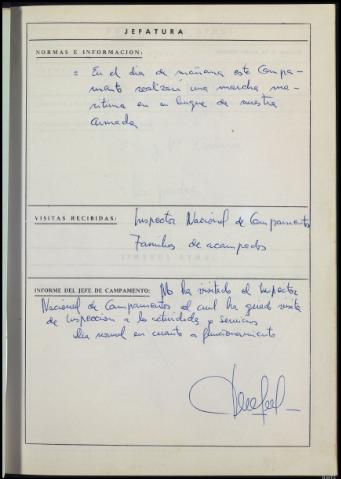 JEFATURA
NORMAS E INFORMACION:
= En el dia de mañana este Campa-
mento realizará una marcha ma-
ritima en un buque de nuestra
Armada
VISITAS RECIBIDAS: Inspector Nacional de Campamentos
Familias de acampados
INFORME DEL JEFE DE CAMPAMENTO: No ha visitado el Inspector
Nacional de Campamentos el cual ha visita
de Inspección a las actividades y servicios
Dia normal en cuanto a funcionamiento